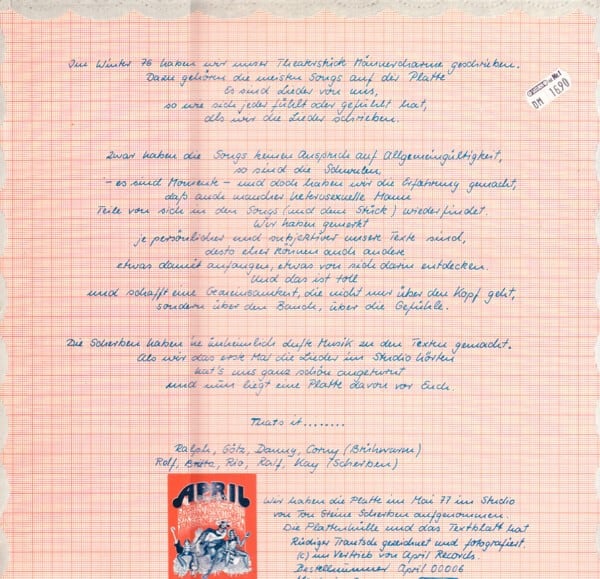 Im Winter 76 haben wir unser Theaterstück Männercharme geschrieben.
Dazu gehören die meisten Songs auf der Platte
Es sind Lieder von uns,
so wie sich jeder fühlt oder gefühlt hat,
als wir die Lieder schrieben.
DM 1690
Zwar haben die Songs keinen Anspruch auf Allgemeingültigkeit,
so sind die Schwulen,
- es sind Momente - und doch haben wir die Erfahrung gemacht,
daß auch mancher heterosexuelle Mann
Teile von sich in den Songs (und dem Stück) wiederfindet.
Wir haben gemerkt
je persönlicher und subjektiver unsere Texte sind,
desto eher können auch andere
etwas damit anfangen, etwas von sich darin entdecken.
Und das ist toll
und schafft eine Gemeinsamkeit, die nicht nur über den Kopf geht,
sondern über den Bauch, über die Gefühle.
Die Scherben haben 'ne unheimlich dufte Musik zu den Texten gemacht.
Als wir das erste Mal die Lieder im Studio hörten
hat's uns ganz schön angeturnt
und nun liegt eine Platte davon vor Euch.
Thats it........
Ralph, Götz, Danny, Corny (Brühwarm)
Rolf, Britta, Rio, Ralf, Kay (Scherben)
APRIL
Wir haben die Platte im Mai 77 im Studio
von Ton Steine Scherben aufgenommen.
Die Plattenhülle und das Textblatt hat
Rüdiger Trautsch gezeichnet und fotografiert.
(c) im Vertrieb von April Records.
Bestellnummer April 00006